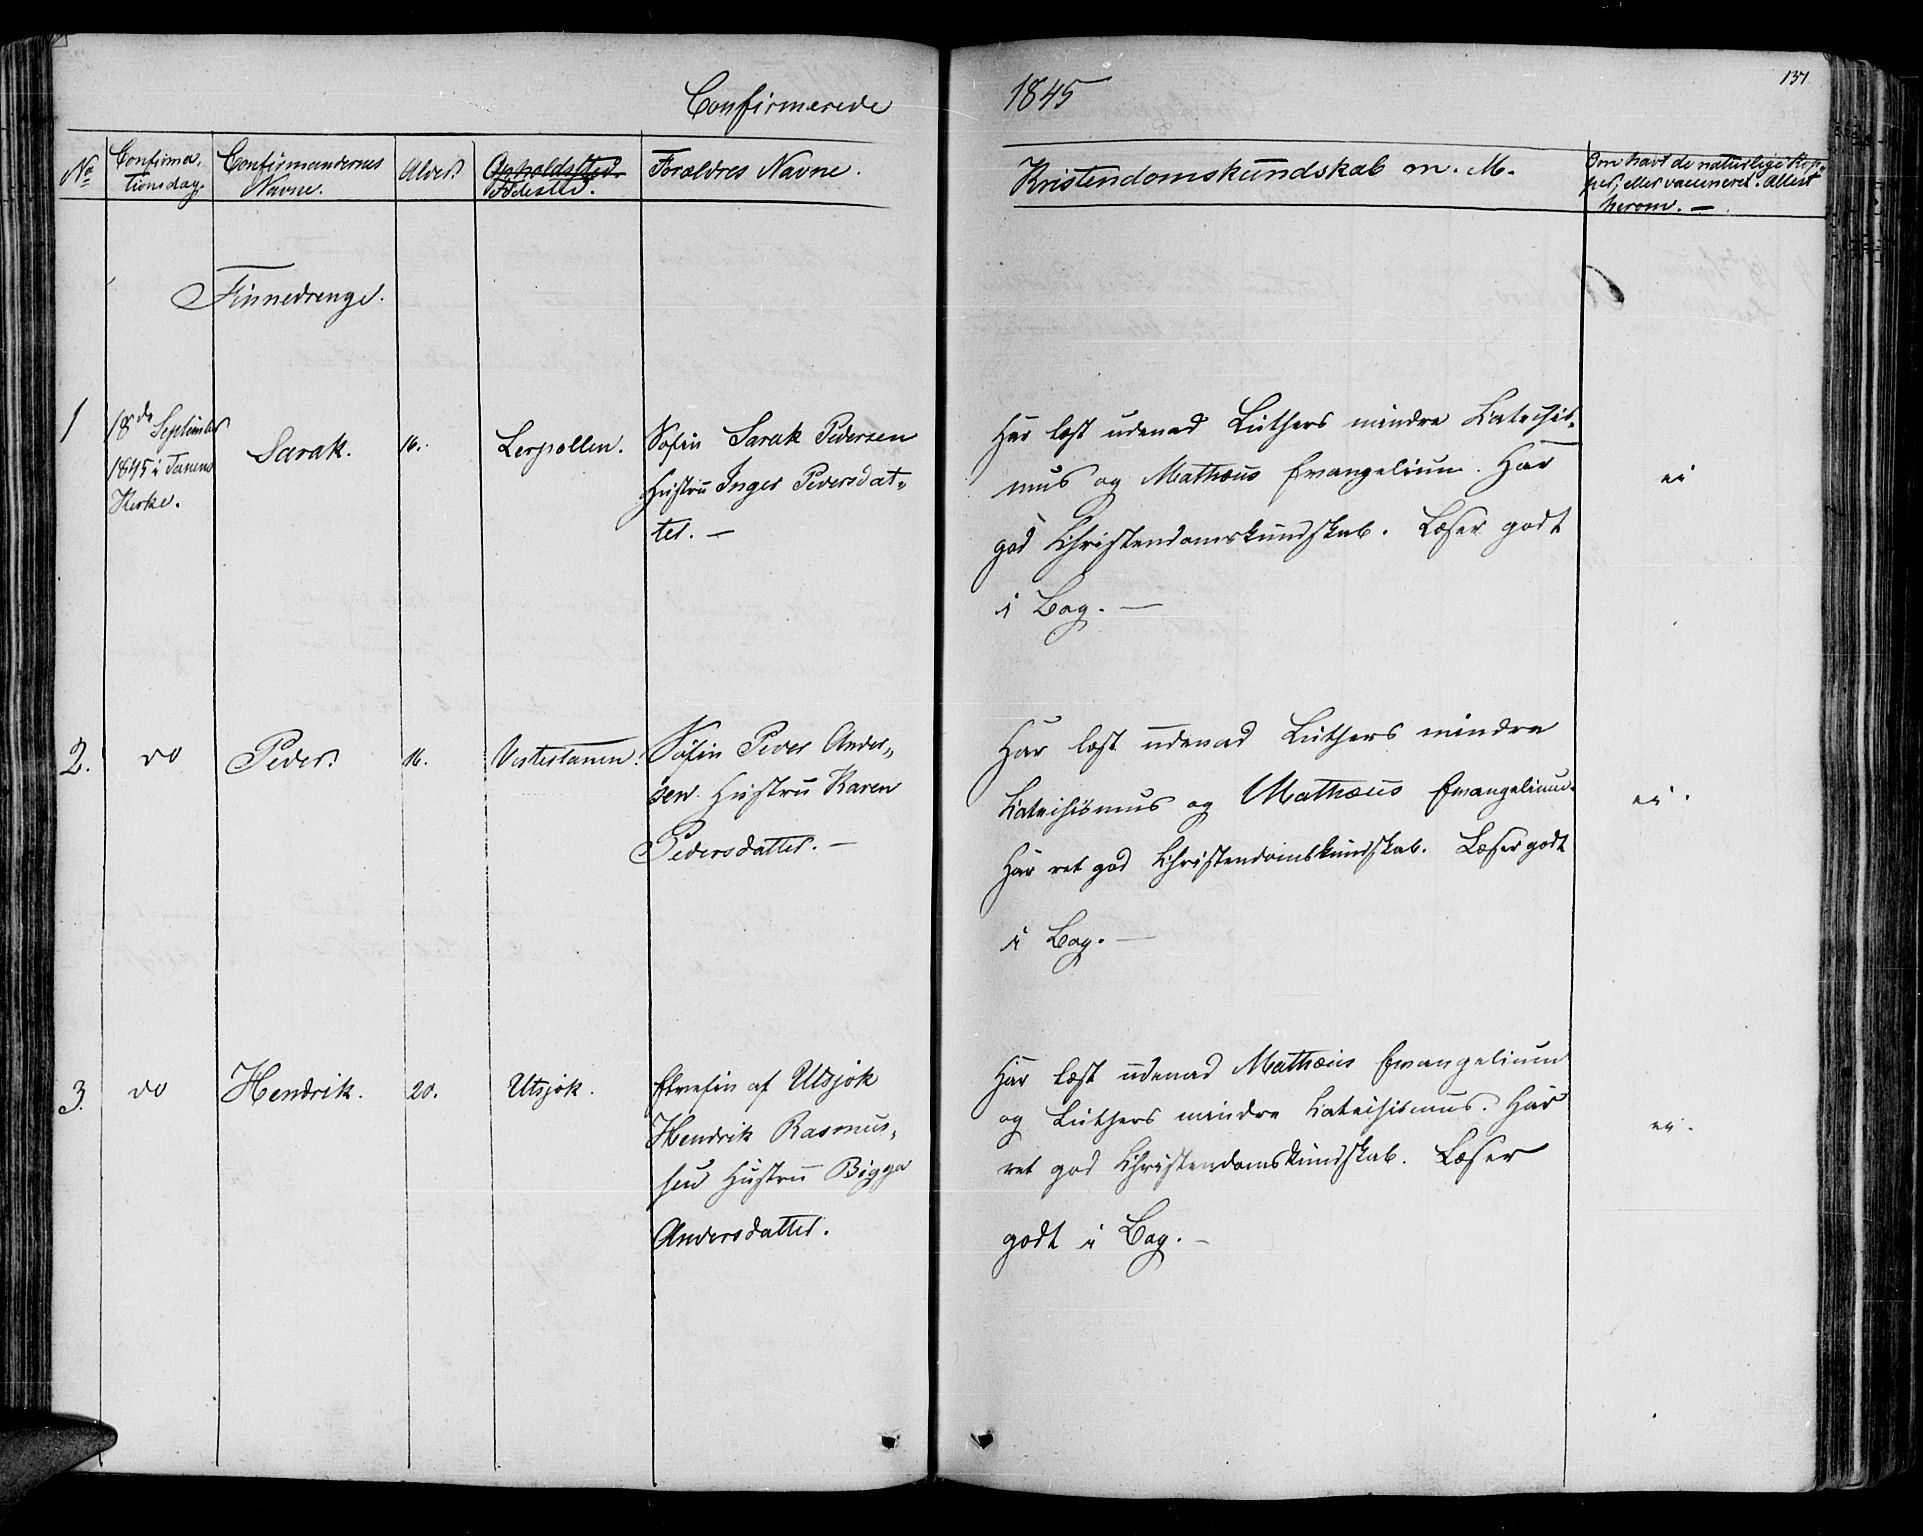 Confirmerede
1845
131
No
Confirma-
tionsdag.
Confirmandernes
Navne.
Alder.
Opholdssted
Fødested.
Forældres Navne.
Kristendomskundskab m. M.
Om havt de naturlige Kop-
per, eller vaccineret. Attest
herom. —
Finnedrenge.
1
18de September
1845 i Tanens
Kirke.
Sarak.
16.
Lerpollen.
Søfin Sarak Pedersen
Hustru Inger Pedersdat-
ter. —
Har læst udenad Luthers mindre Katechis-
mus og Mathæus Evangelium. Har
god Christendomskundskab. Læser godt
i Bog. —
ei
2.
do
Peder.
16.
Vestertanen.
Søfin Peder Ander-
sen. Hustru Karen
Pedersdatter. —
Har læst udenad Luthers mindre
Katechismus og Mathæus Evangelium.
Har ret god Christendomskundskab. Læser godt
i Bog. —
ei.
3.
do
Hendrik.
20.
Utsjok.
Elvefin af Utsjok
Hendrik Rasmus-
sen Hustru Bigga
Andersdatter.
Har læst udenad Mathæus Evangelium
og Luthers mindre Katechismus. Har
ret god Christendomskundskab. Læser
godt i Bog. —
ei.